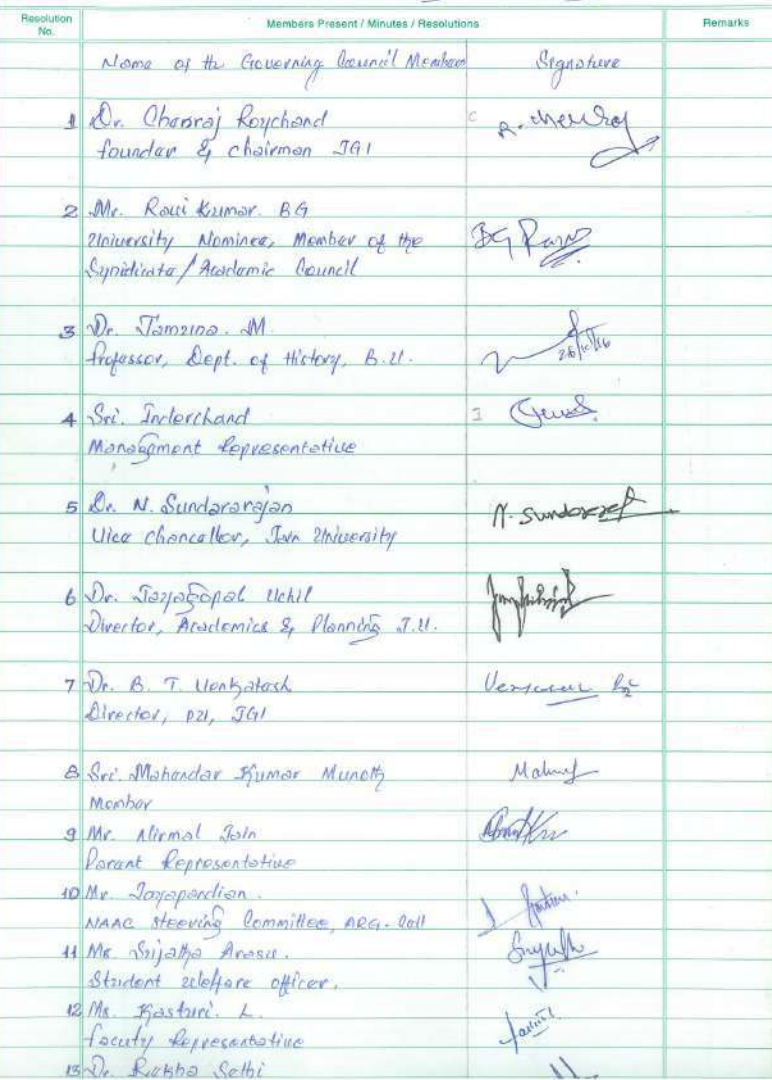 Resolution No. Members Present / Minutes / Resolutions Remarks
Name of the Governing Council Members Signature
1 Dr. Chenraj Roychand R. Chenraj
founder & chairman JGI
2 Mr. Ravi Kumar. BG BG Ravi
University Nominee, Member of the
Syndicate / Academic Council
3 Dr. Jamuna. M. 26/10/16
Professor, Dept. of History, B.U.
4 Sri. Inderchand
Management Representative
5 Dr. N. Sundararajan N. Sundararaj
Vice Chancellor, Jain University
6 Dr. Jayagopal Uchil
Director, Academics & Planning J.U.
7 Dr. B. T. Venkatesh
Director, JGI
8 Sri. Mahender Kumar Munoth
Member
9 Mr. Nirmal Jain
Parent Representative
10 Mr. Jayapandian.
NAAC Steering Committee,
11 Ms. Srijatha Arasu.
Student welfare officer.
12 Ms. Kasturi. L.
faculty Representative
13 Dr. Rekha Sethi